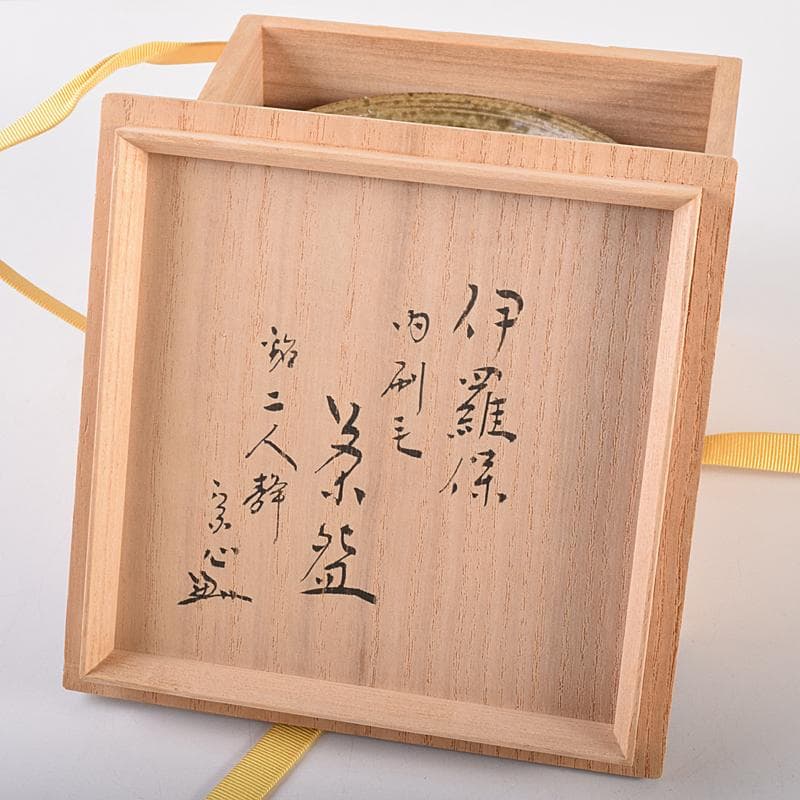 伊羅保
内刷毛
茶盌
銘 二人静
宗心